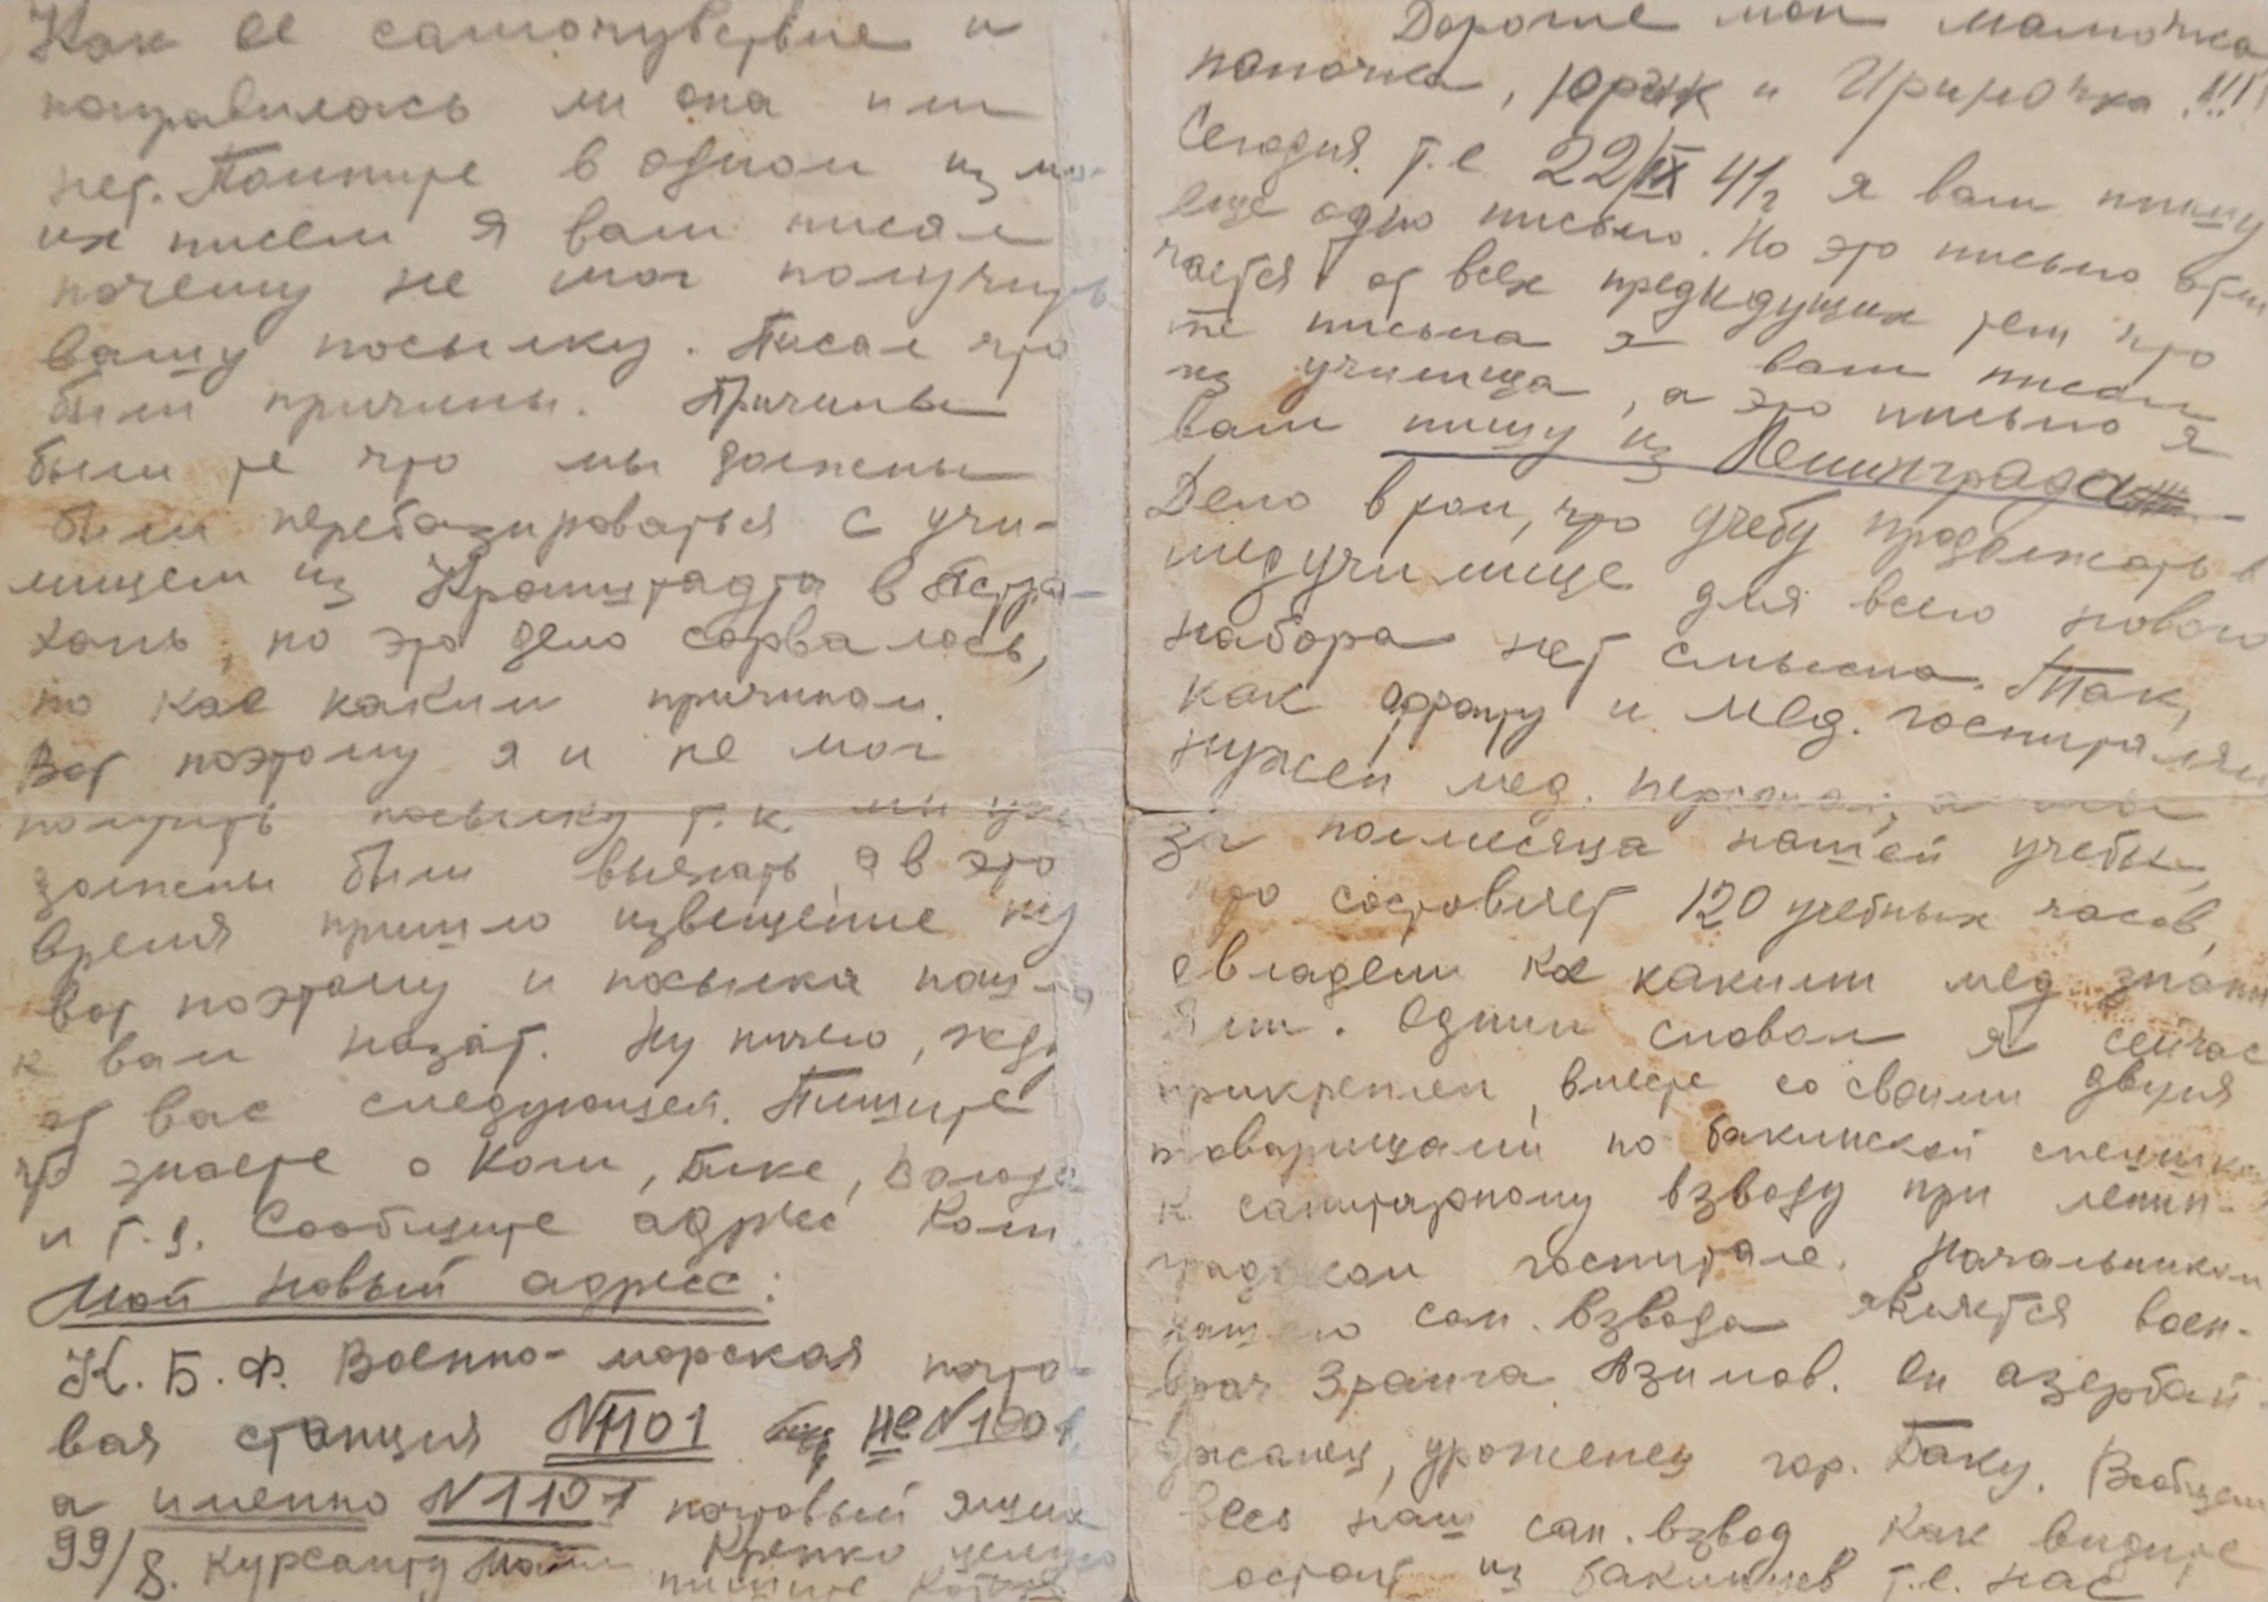 Дорогие мои мамочка
папочка, Юрик и Ирирочка!!!
Сегодня т.е 22/IX 41г я вам пишу
еще одно письмо. Но это письмо отли
чается от всех предидущих тем что
те письма я вам писал
из училища, а это письмо я
вам пишу из Ленинграда
Дело в том, что учебу продолжать в
медучилище для всего нового
набора нет смысла. Так,
как фронту и мед. госпиталям
нужен мед. персонал, а мы
за полмесяца нашей учебы,
что составляет 120 учебных часов,
овладели кое какими мед. знани
ями. Одним словом я сейчас
прикреплен, вместе со своими двумя
товарищами по бакинской спецшколе
к санитарному взводу при ленин-
градском госпитале. Начальником
нашего сан. взвода является воен-
врач 3 ранга Азимов. Он азербай-
джанец, уроженец гор. Баку. Вообщем
весь наш сан. взвод, как видите
остоит из бакинцев т.е. нас
Как ее самочувствие и
поправилась ли она или
нет. Помните в одном из мо-
их писем я вам писал
почему не мог получить
вашу посылку. Писал что
были причины. Причины
были те что мы должны
были перебазироваться с учи-
лищем из Кронштадта в Астра-
хань, но это дело сорвалось,
по кае каким причинам.
Вот поэтому я и не мог
получить посылку т.к. мы уже
должны были выехать, а в это
время пришло извещение ну
вот поэтому и посылка пошла
к вам назат. Ну ничего, жду
от вас следующей. Пишите
что знаете о Коли, Алке, Володе
и т.д. Сообщите адрес Коли.
Мой новый адрес:
К. Б. Ф. Военно-морская почто-
вая станция №1101 не №1001,
а именно №1101 почтовый ящик
99/8. курсанту Крепко целую
пишите